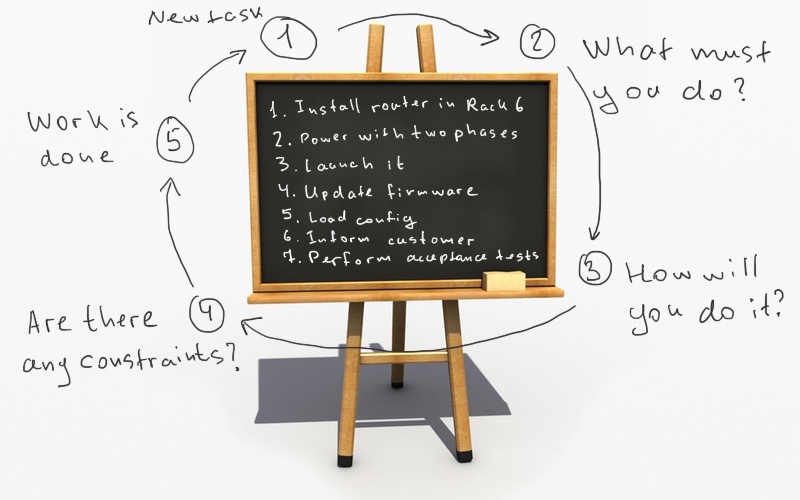 New task
1
2
What must
you do?
Work is
done
5
1. Install router in Rack 6
2. Power with two phases
3. Launch it
4. Update firmware
5. Load config
6. Inform customer
7. Perform acceptance tests
3
How will
you do it?
4
Are there
any constraints?